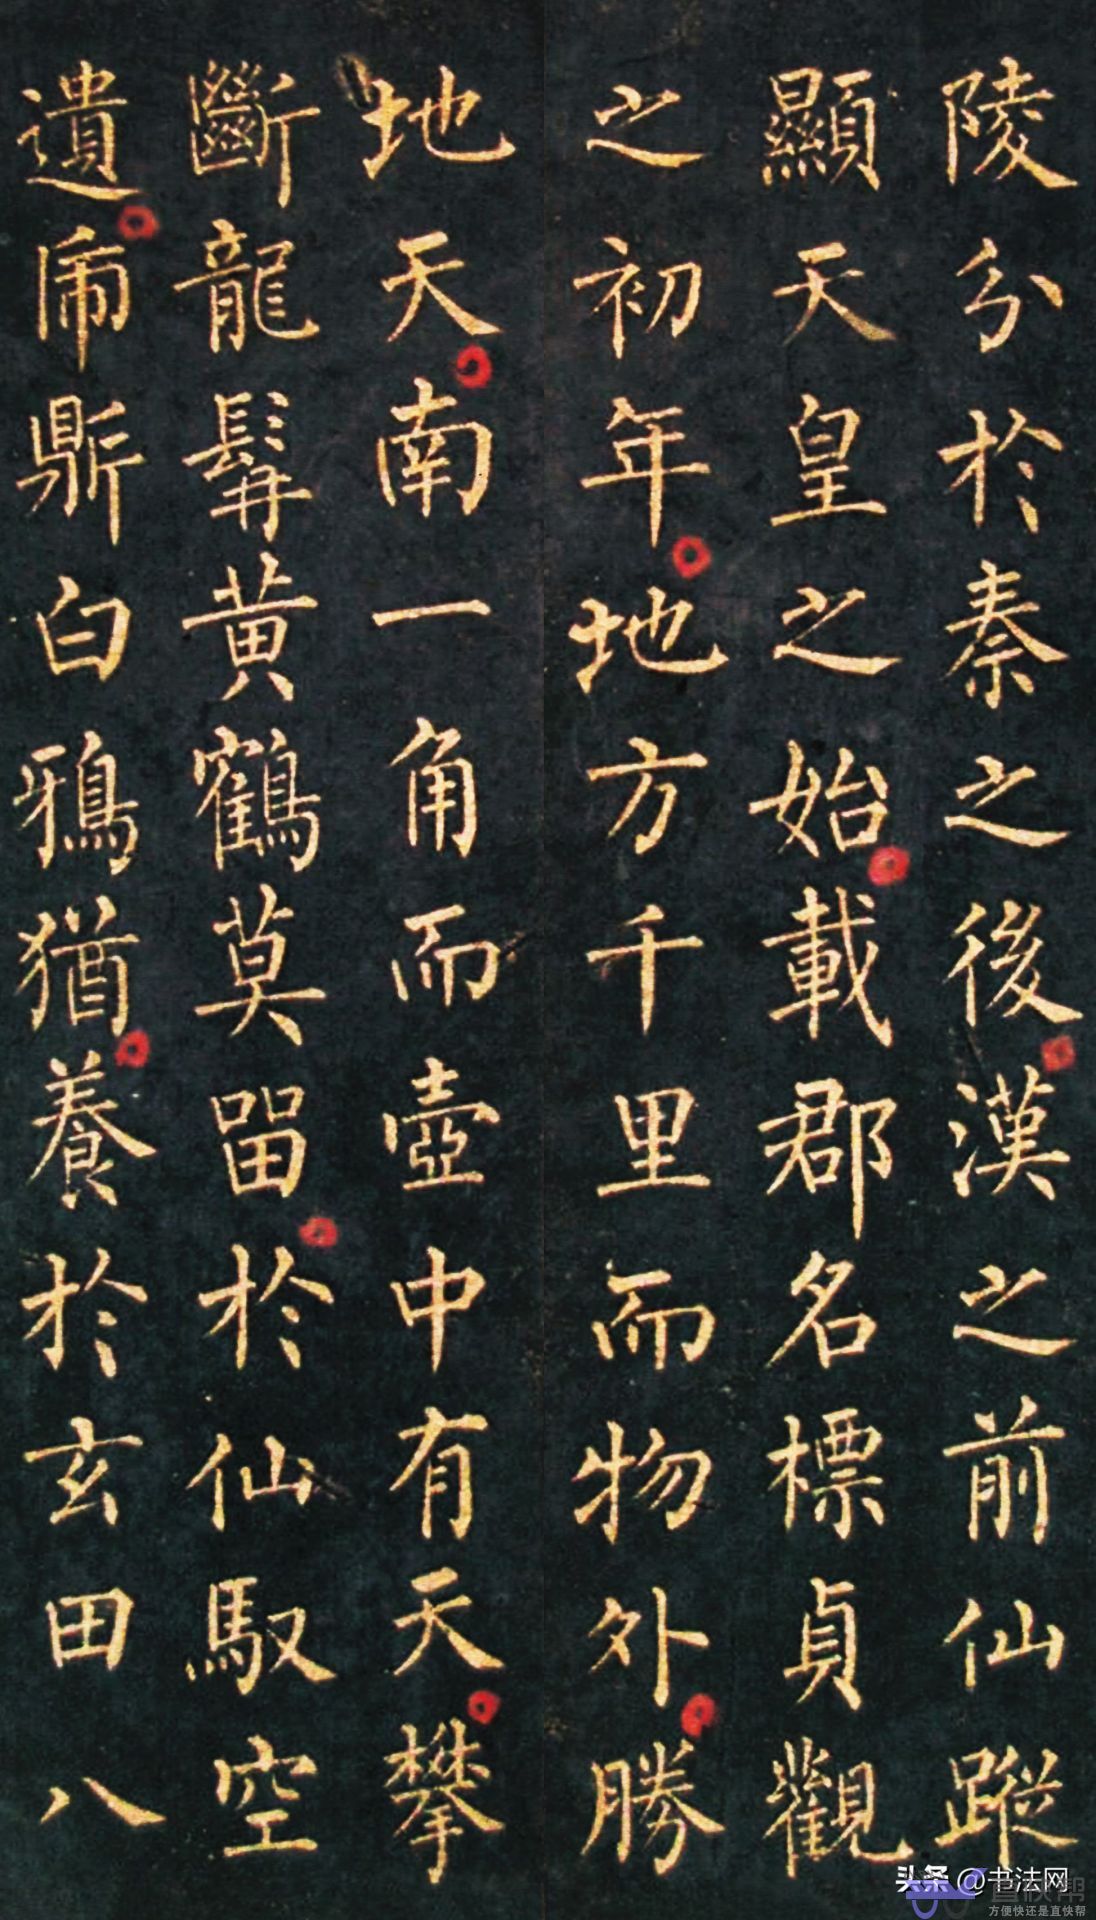 陵分於秦之後漢之前仙蹤
顯天皇之始載郡名標貞觀
之初年地方千里而物外勝
地天南一角而壺中有天攀
斷龍髯黄鶴莫留於仙馭空
遺乕鼎白鴉猶養於玄田八
头条 @书法网
直快帮
方便快还是直快帮